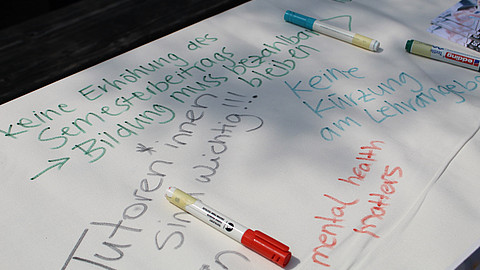 Keine Erhöhung des
Semesterbeitrags
→ Bildung muss bezahlbar
bleiben
Keine
Kürzung
am Lehrangebot
Tutoren*innen
sind wichtig!!!
mental health
matters
edding